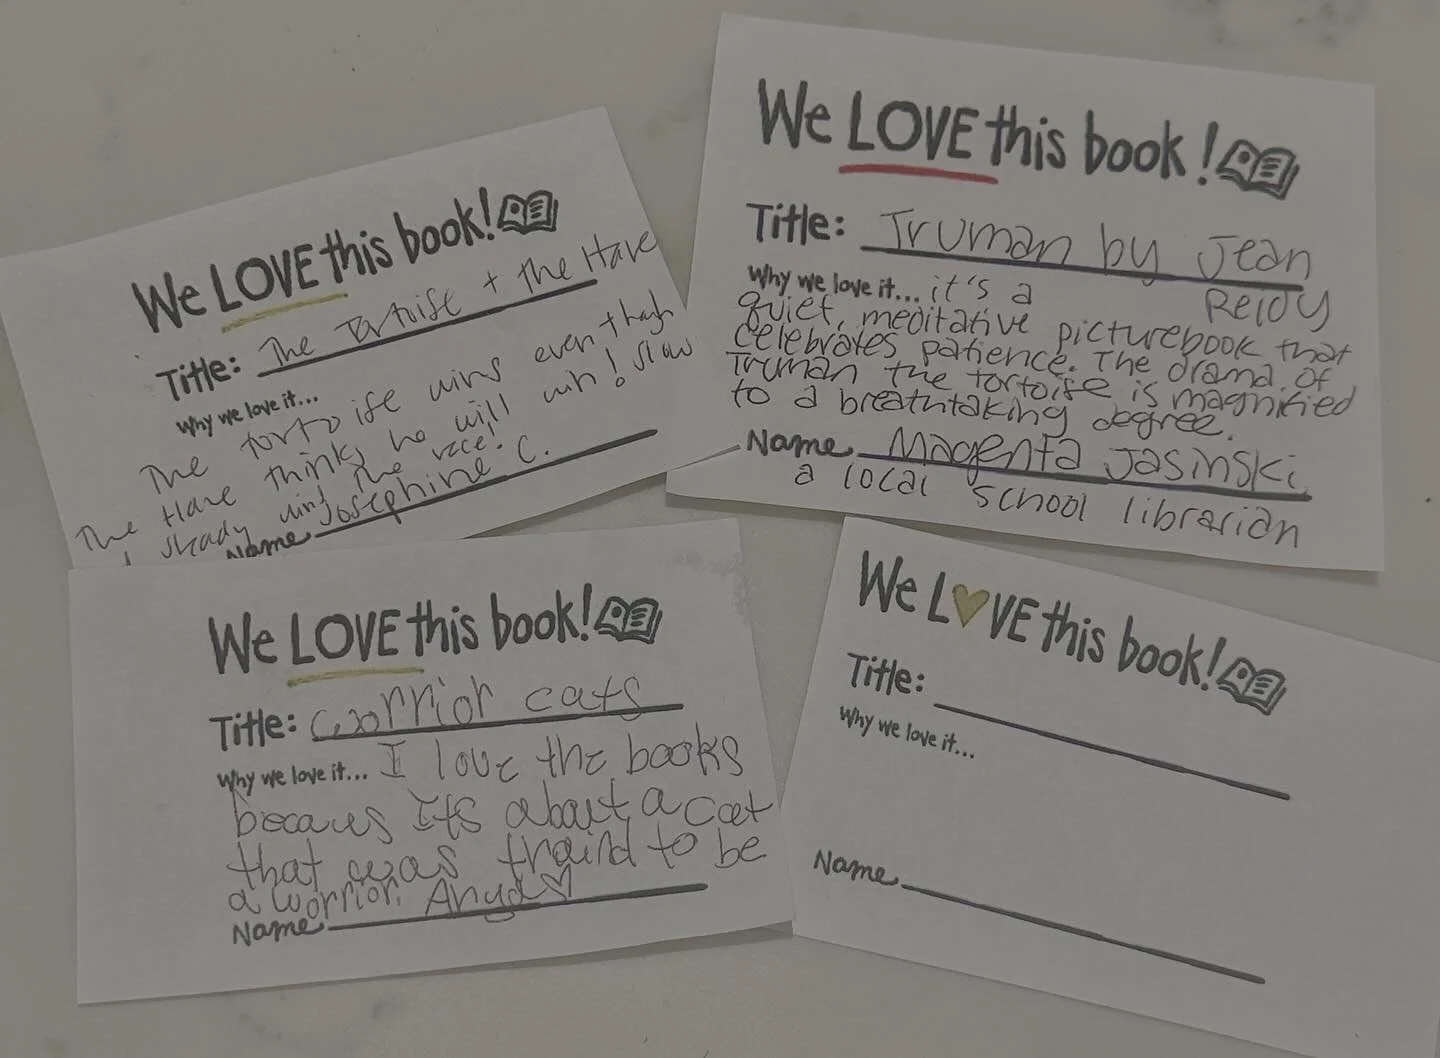 We LOVE this book!
Title: The Tortoise + The Hare
Why we love it...
The tortoise wins even though
The Hare thinks he will win! Slow
shady wins the race!
Name Josephine C.
We LOVE this book!
Title: Truman by Jean
Reidy
Why we love it... it's a
quiet, meditative picturebook that
celebrates patience. The drama of
Truman the tortoise is magnified
to a breathtaking degree.
Name Magenta Jasinski
a local school librarian
We LOVE this book!
Title: worrior cats
Why we love it... I love the books
becaues its about a cat
that was traind to be
a worrior. Anya♡
Name
We L♥VE this book!
Title:
Why we love it...
Name